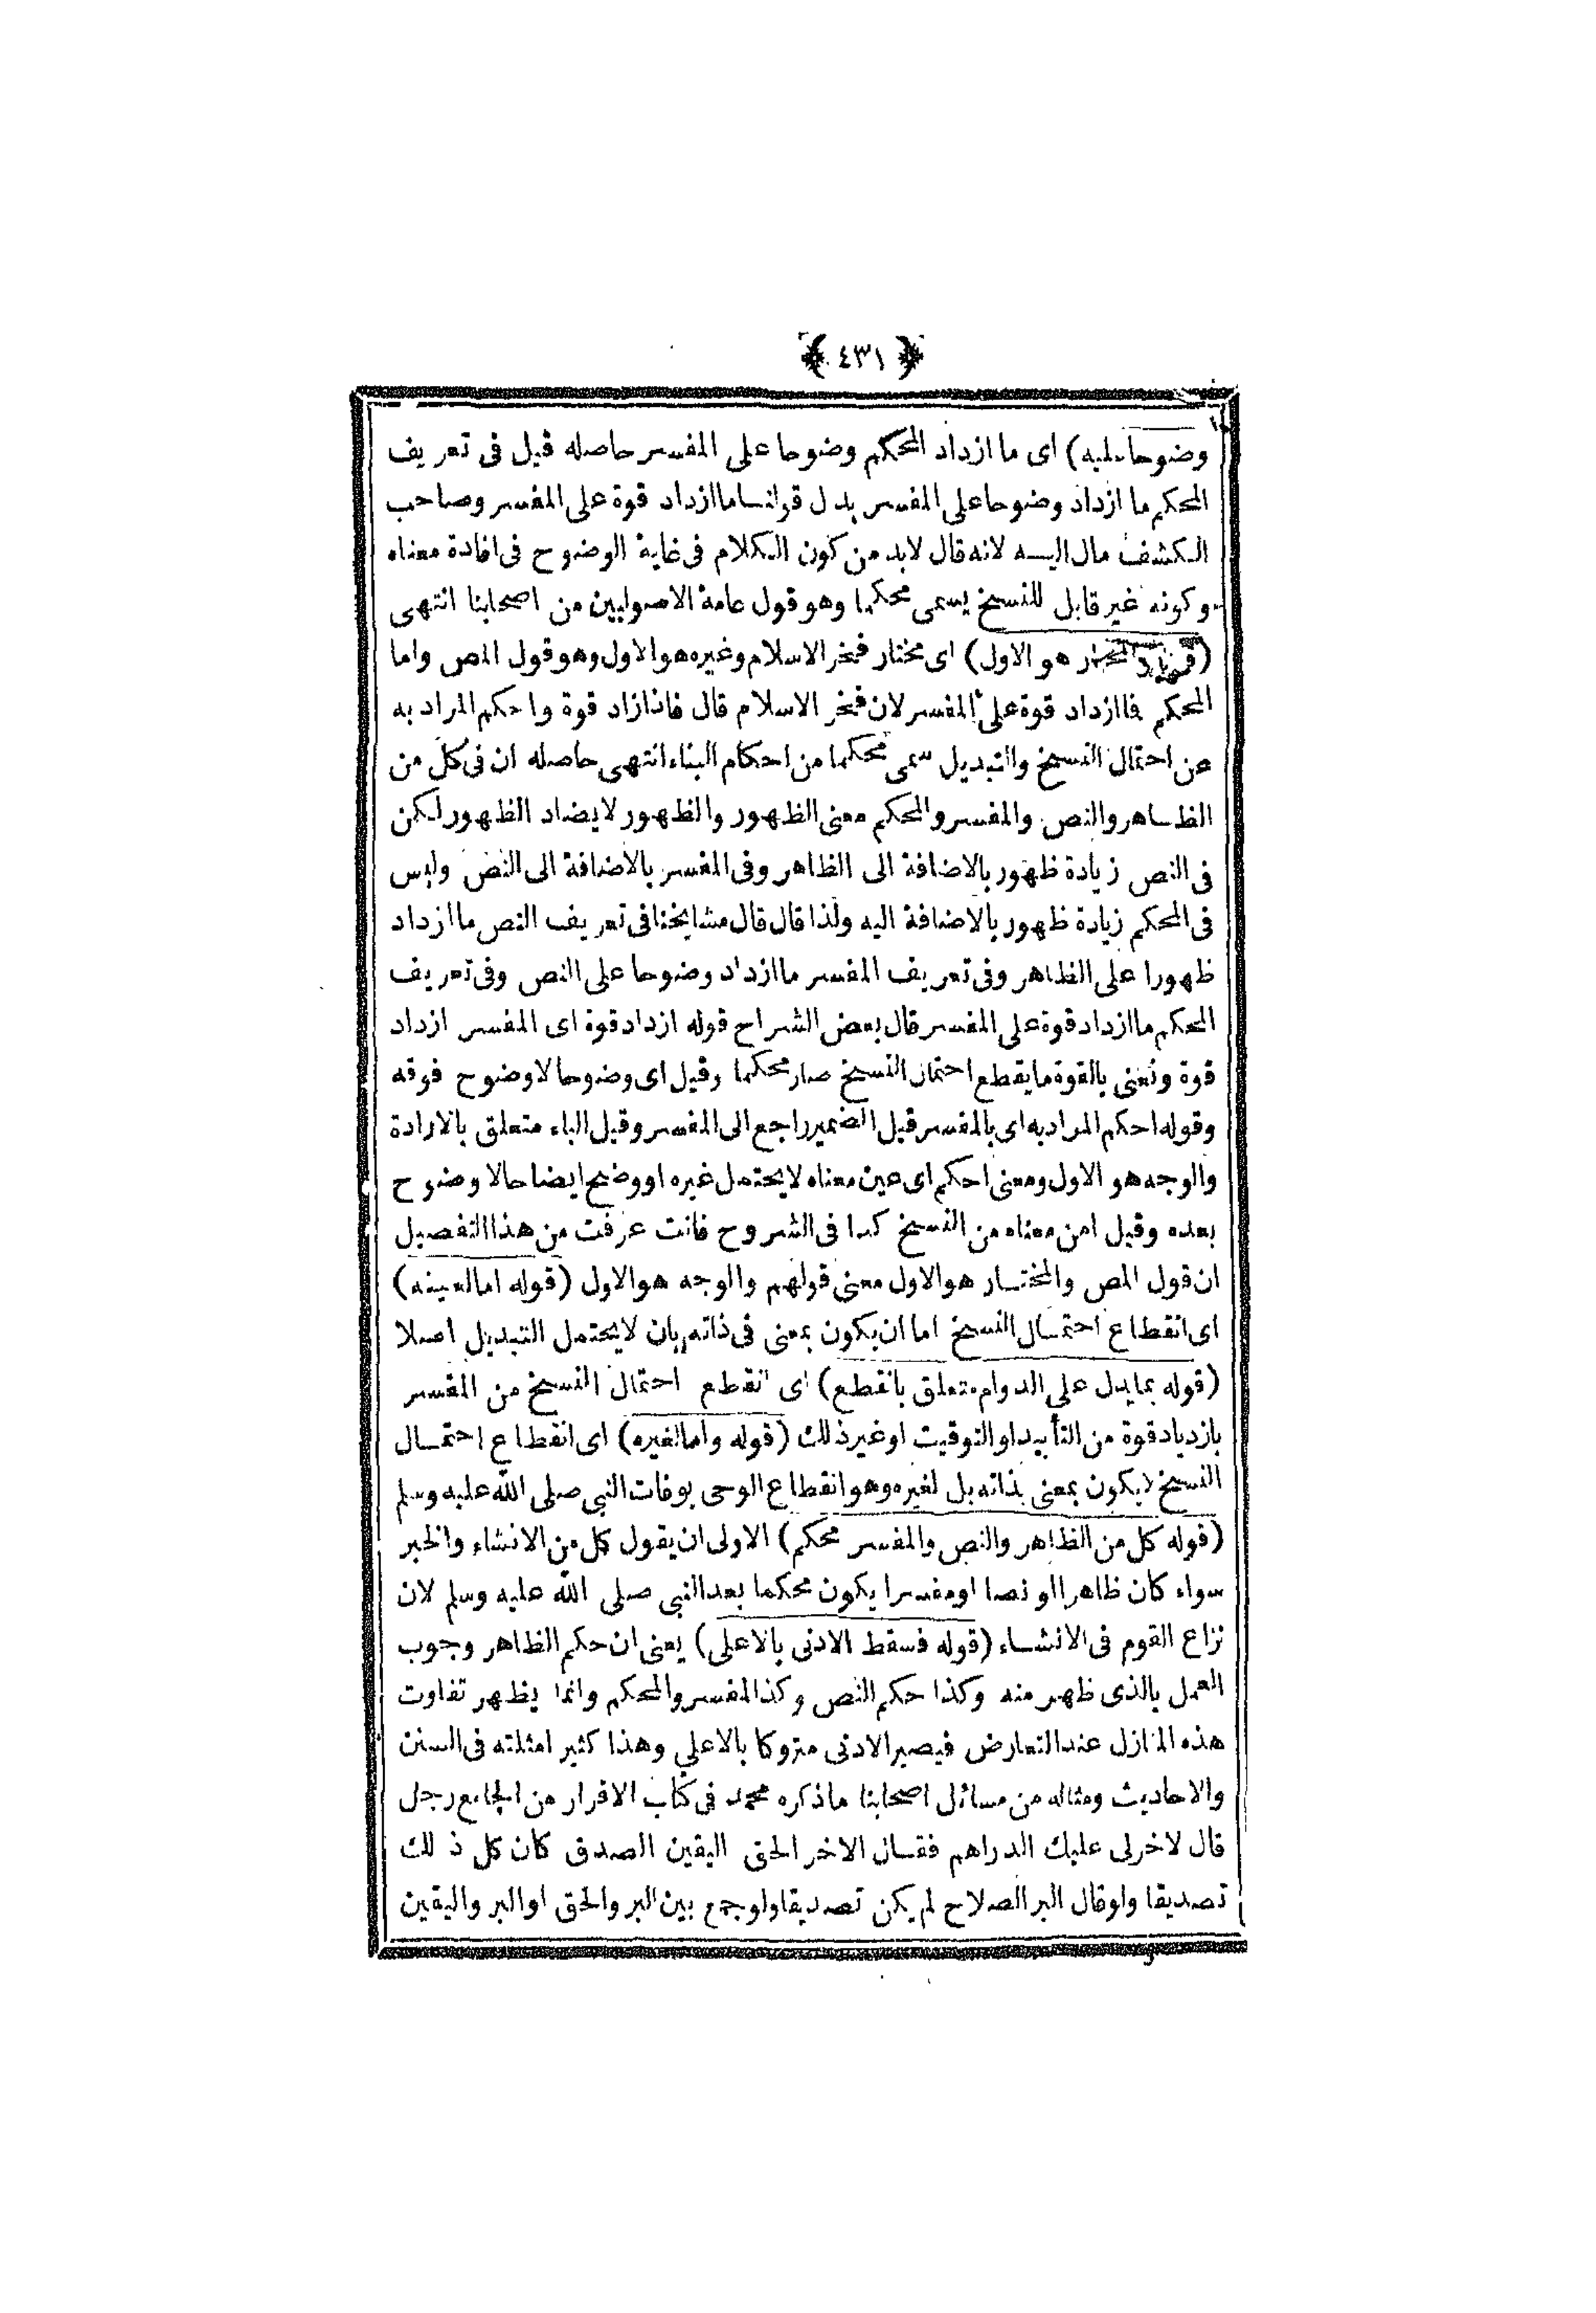 ﴿ ٤٣١ ﴾
وضوحا عليه) اى ما ازداد المحكم وضوحا على المفسر حاصله قيل فى تعريف
المحكم ما ازداد وضوحا على المفسر بدل قولنا ما ازداد قوة على المفسر وصاحب
الكشف مال اليه لانه قال لابد من كون الكلام فى غاية الوضوح فى افادة معناه
وكونه غير قابل للنسخ يسمى محكما وهو قول عامة الاصوليين من اصحابنا انتهى
(قوله والمختار هو الاول) اى مختار فخر الاسلام وغيره هو الاول وهو قول المص واما
المحكم فاازداد قوة على المفسر لان فخر الاسلام قال فاذا زاد قوة واحكم المراد به
عن احتمال النسخ والتبديل سمى محكما من احكام البناء انتهى حاصله ان فى كل من
الظاهر والنص والمفسر والمحكم معنى الظهور والظهور لايضاد الظهور لكن
فى النص زيادة ظهور بالاضافة الى الظاهر وفى المفسر بالاضافة الى النص وليس
فى المحكم زيادة ظهور بالاضافة اليه ولذا قال قال مشايخنا فى تعريف النص ما ازداد
ظهورا على الظاهر وفى تعريف المفسر ما ازداد وضوحا على النص وفى تعريف
المحكم ما ازداد قوة على المفسر قال بعض الشراح قوله ازداد قوة اى المفسر ازداد
قوة ونعنى بالقوة ما يقطع احتمال النسخ صار محكما وقيل اى وضوحا لاوضوح فوقه
وقوله احكم المراد به اى بالمفسر قيل الضمير راجع الى المفسر وقيل الباء متعلق بالارادة
والوجه هو الاول ومعنى احكم اى عين معناه لايحتمل غيره او وضح ايضاحا لا وضوح
بعده وقيل امن معناه من النسخ كدا فى الشروح فانت عرفت من هذا التفصيل
ان قول المص والمختار هو الاول معنى قولهم والوجه هو الاول (قوله اما لعينه)
اى انقطاع احتمال النسخ اما ان يكون بمعنى فى ذاته بان لايحتمل التبديل اصلا
(قوله بما يدل على الدوام متعلق بانقطع) اى انقطع احتمال النسخ من المفسر
بازدياد قوة من التأبيد او التوقيت اوغير ذلك (قوله واما لغيره) اى انقطاع احتمال
النسخ لايكون بمعنى بذاته بل لغيره وهو انقطاع الوحى بوفات النبى صلى الله عليه وسلم
(قوله كل من الظاهر والنص والمفسر محكم) الاولى ان يقول كل من الانشاء والخبر
سواء كان ظاهرا او نصا اومفسرا يكون محكما بعد النبى صلى الله عليه وسلم لان
نزاع القوم فى الانشاء (قوله فسقط الادنى بالاعلى) يعنى ان حكم الظاهر وجوب
العمل بالذى ظهر منه وكذا حكم النص وكذا المفسر والمحكم وانما يظهر تفاوت
هذه المنازل عند التعارض فيصير الادنى متروكا بالاعلى وهذا كثير امثلته فى السنن
والاحاديث ومثاله من مسائل اصحابنا ماذكره محمد فى كتاب الاقرار من الجامع رجل
قال لاخر لى عليك الدراهم فقال الاخر الحق اليقين الصدق كان كل ذلك
تصديقا ولوقال البر الصلاح لم يكن تصديقا ولوجمع بين البر والحق اوالبر واليقين